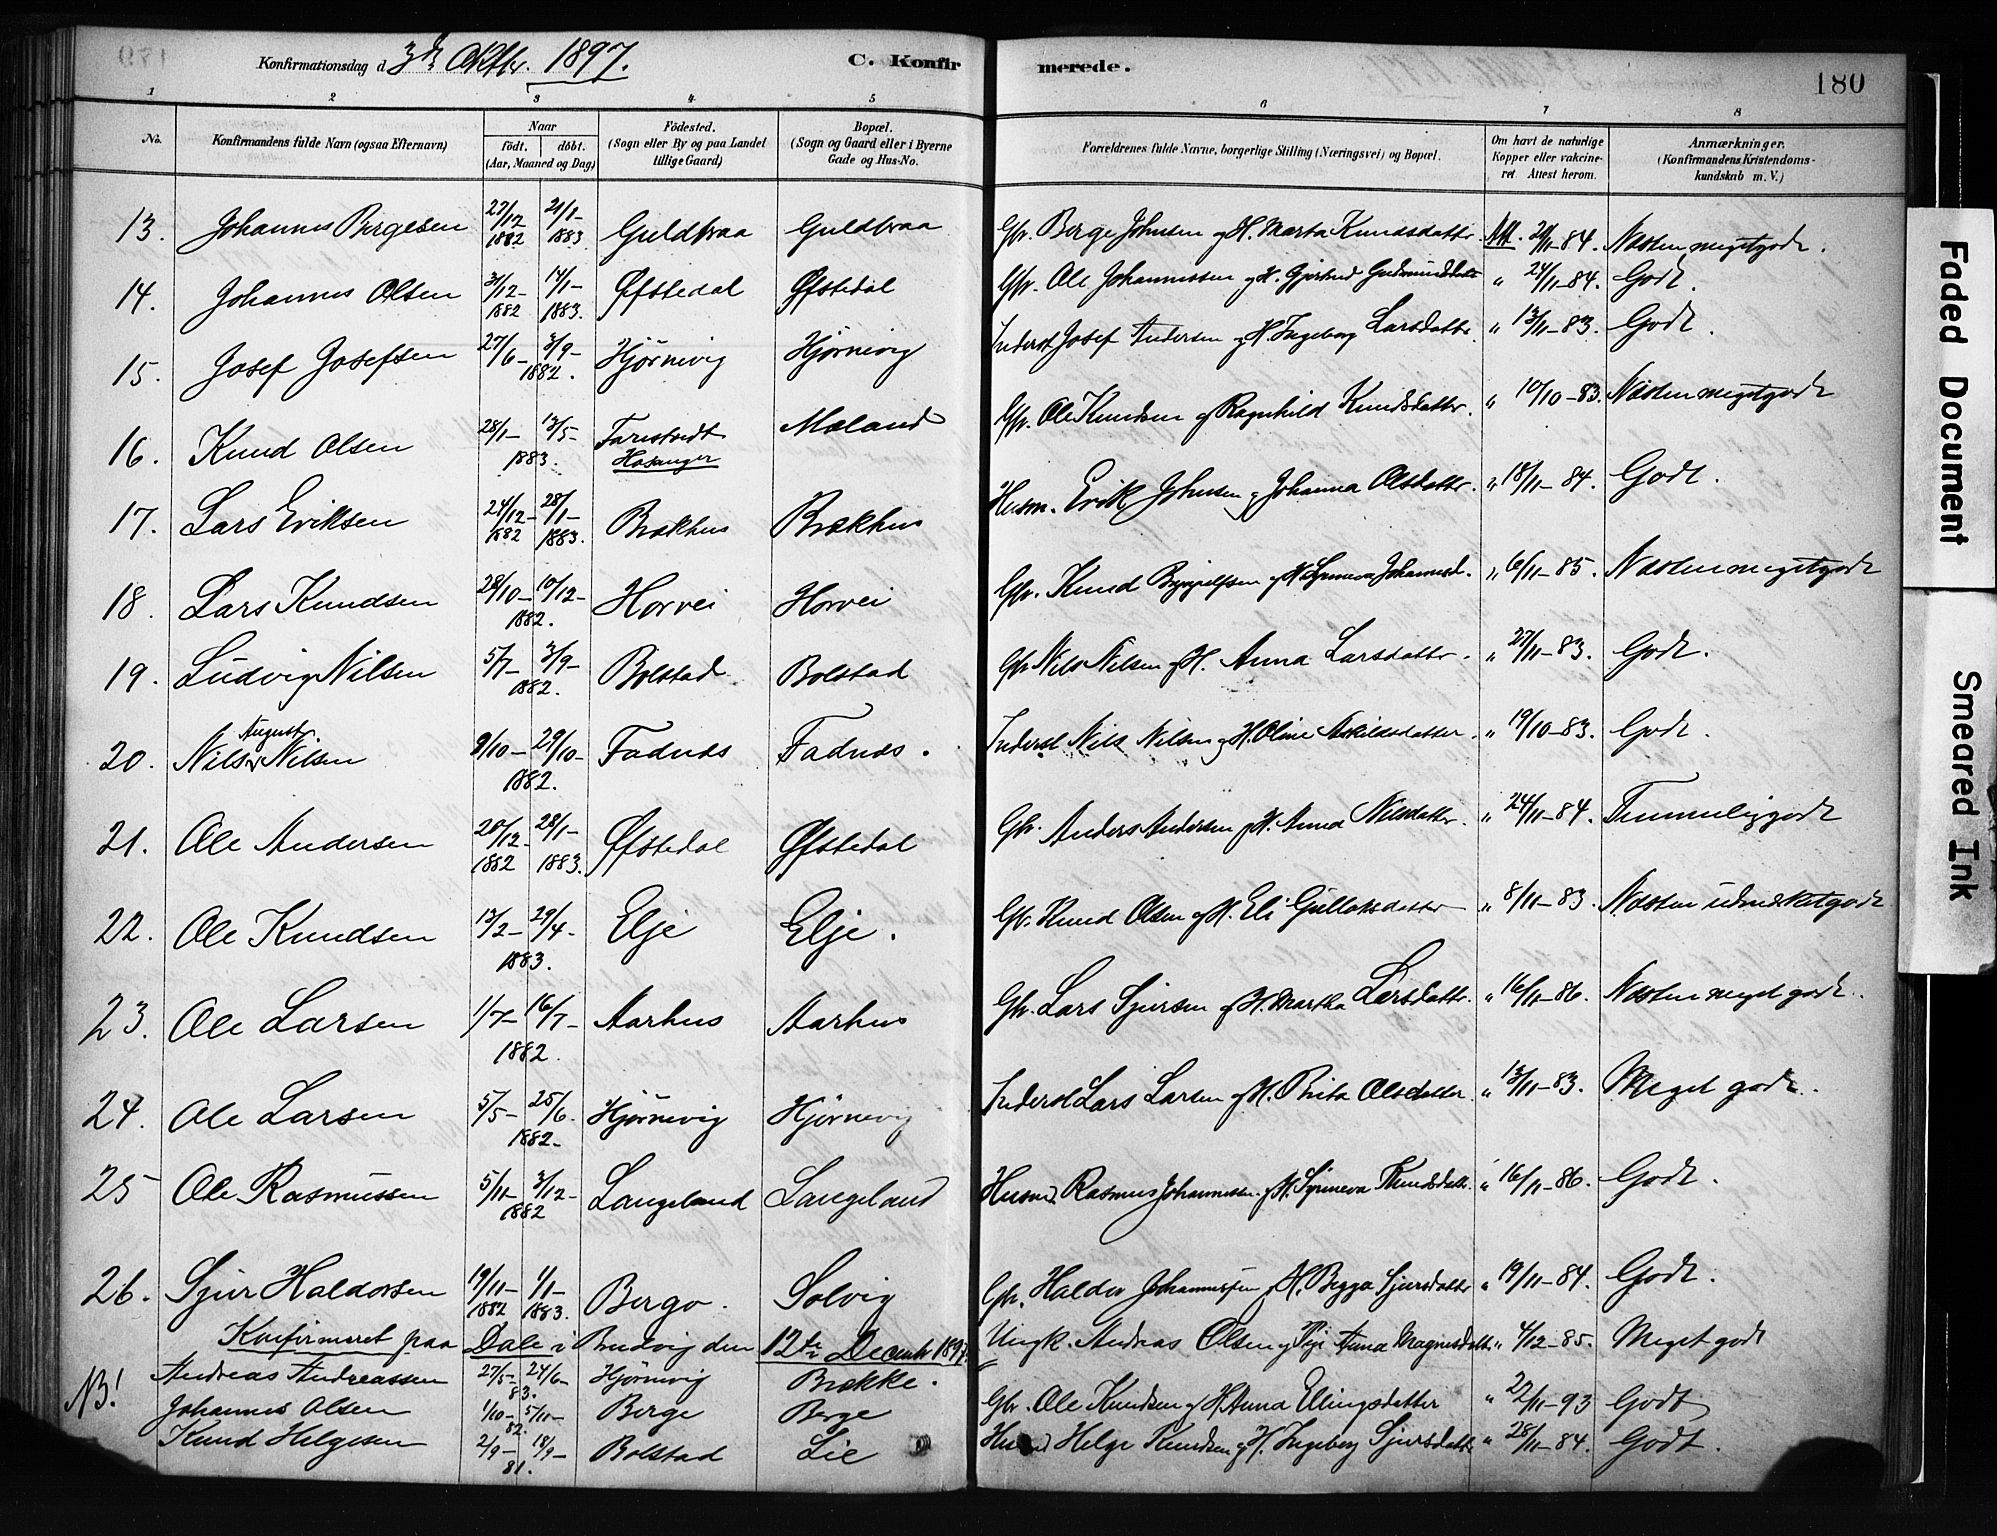 Konfirmationsdag d. 3die Oktbr. 1897. C. Konfirmerede. 180
1 2 3 4 5 6 7 8
No. Konfirmandens fulde Navn (ogsaa Efternavn) Naar födt. döbt. (Aar, Maaned og Dag) Födested. (Sogn eller By og paa Landet tillige Gaard) Bopæl. (Sogn og Gaard eller i Byerne Gade og Hus-No. Forældrenes fulde Navne, borgerlige Stilling (Næringsvei) og Bopæl. Om havt de naturlige Kopper eller vakcineret. Attest herom. Anmærkninger. (Konfirmandens Kristendomskundskab m. V.)
13. Johannes Bergesen 27/12 1882 21/1- 1883 Guldbraa Guldbraa Gbr. Berge Johnsen og H. Marta Knudsdatter Att. 28/11-84. Næsten megetgodt.
14. Johannes Olsen 31/12- 1882 14/1- 1883. Øfstedal Øfstedal Gbr. Ole Johannessen og H. Gjertrud Gudmundsdatt " 24/11-84. Godt.
15. Josef Josefsen 27/6- 3/9- 1882. Hjørnevig Hjørnevig Inderst Josef Andersen og H. Ingeborg Larsdatter " 13/11-83. Godt.
16. Knud Olsen 28/1- 13/5- 1883. Farestvedt Hosanger Mæland Gbr. Ole Knudsen og Ragnhild Knudsdatter. " 10/10-83. Næsten megetgodt
17. Lars Eriksen 24/12- 1882 28/1- 1883. Brækhus Brækhus Husm. Erik Johnsen og Johanna Olsdatter. " 18/11-84. Godt.
18. Lars Knudsen 28/10- 10/12- 1882. Horvei Horvei Gbr. Knud Brynjelfsen og H. Synneva Johannesd. " 6/11-85. Næsten megetgodt
19. Ludvig Nilsen 5/7- 3/9- 1882. Bolstad Bolstad Gbr Nils Nilsen og H. Anna Larsdatter. " 27/11-83. Godt.
20. Nils August Nilsen 9/10- 29/10- 1882. Fadnæs Fadnæs. Inderst Nils Nilsen og H. Oline Askildsdatter. " 19/10-83. Godt.
21. Ole Andersen 20/12- 1882 28/1- 1883. Øfstedal Øfstedal Gbr. Anders Andersen og H. Anna Nilsdatter. " 24/11-84. Temmeliggodt
22. Ole Knudsen 13/2- 29/4- 1883. Elje Elje. Gbr. Knud Olsen og H. Eli Gulleiksdatter " 8/11-83. Næsten udmærketgodt
23. Ole Larsen 1/7- 16/7- 1882. Aarhus Aarhus Gbr. Lars Sjursen og H. Martha Larsdatter. " 16/11-86. Næsten meget godt.
24. Ole Larsen 5/5- 25/6- 1882. Hjørnevig Hjørnevig Inderst Lars Larsen og H. Brita Olsdatter. " 13/11-83. Meget godt.
25 Ole Rasmussen 5/11- 3/12- 1882 Langeland Langeland Husmd. Rasmus Johannessen og H. Synneva Knudsdatt. " 16/11-86. Godt.
26. Sjur Haldorsen 19/11- 1882 1/1- 1883. Bergo. Solvig Gbr. Haldor Johannessen og H. Brygga Sjursdatter " 19/11-84. Godt.
Konfirmeret paa Dale i Bruvig den 12te Decemb. 1897.
NB! Andreas Andreassen 27/5- 24/6- 83. Hjørnevig Brække. Ungk. Andreas Olsen og Pige Anna Magnusdatt. " 4/12-85. Meget godt
Johannes Olsen 1/10- 5/11- 82. Berge Berge Gbr. Ole Knudsen og H. Anna Ellingsdatter " 27/11-93 Godt
Knud Helgesen 2/9- 18/9- 81. Bolstad Lie Husmd Helge Knudsen og H. Ingeborg Sjursdatter " 28/11-84. Godt.
Faded Document
Smeared Ink